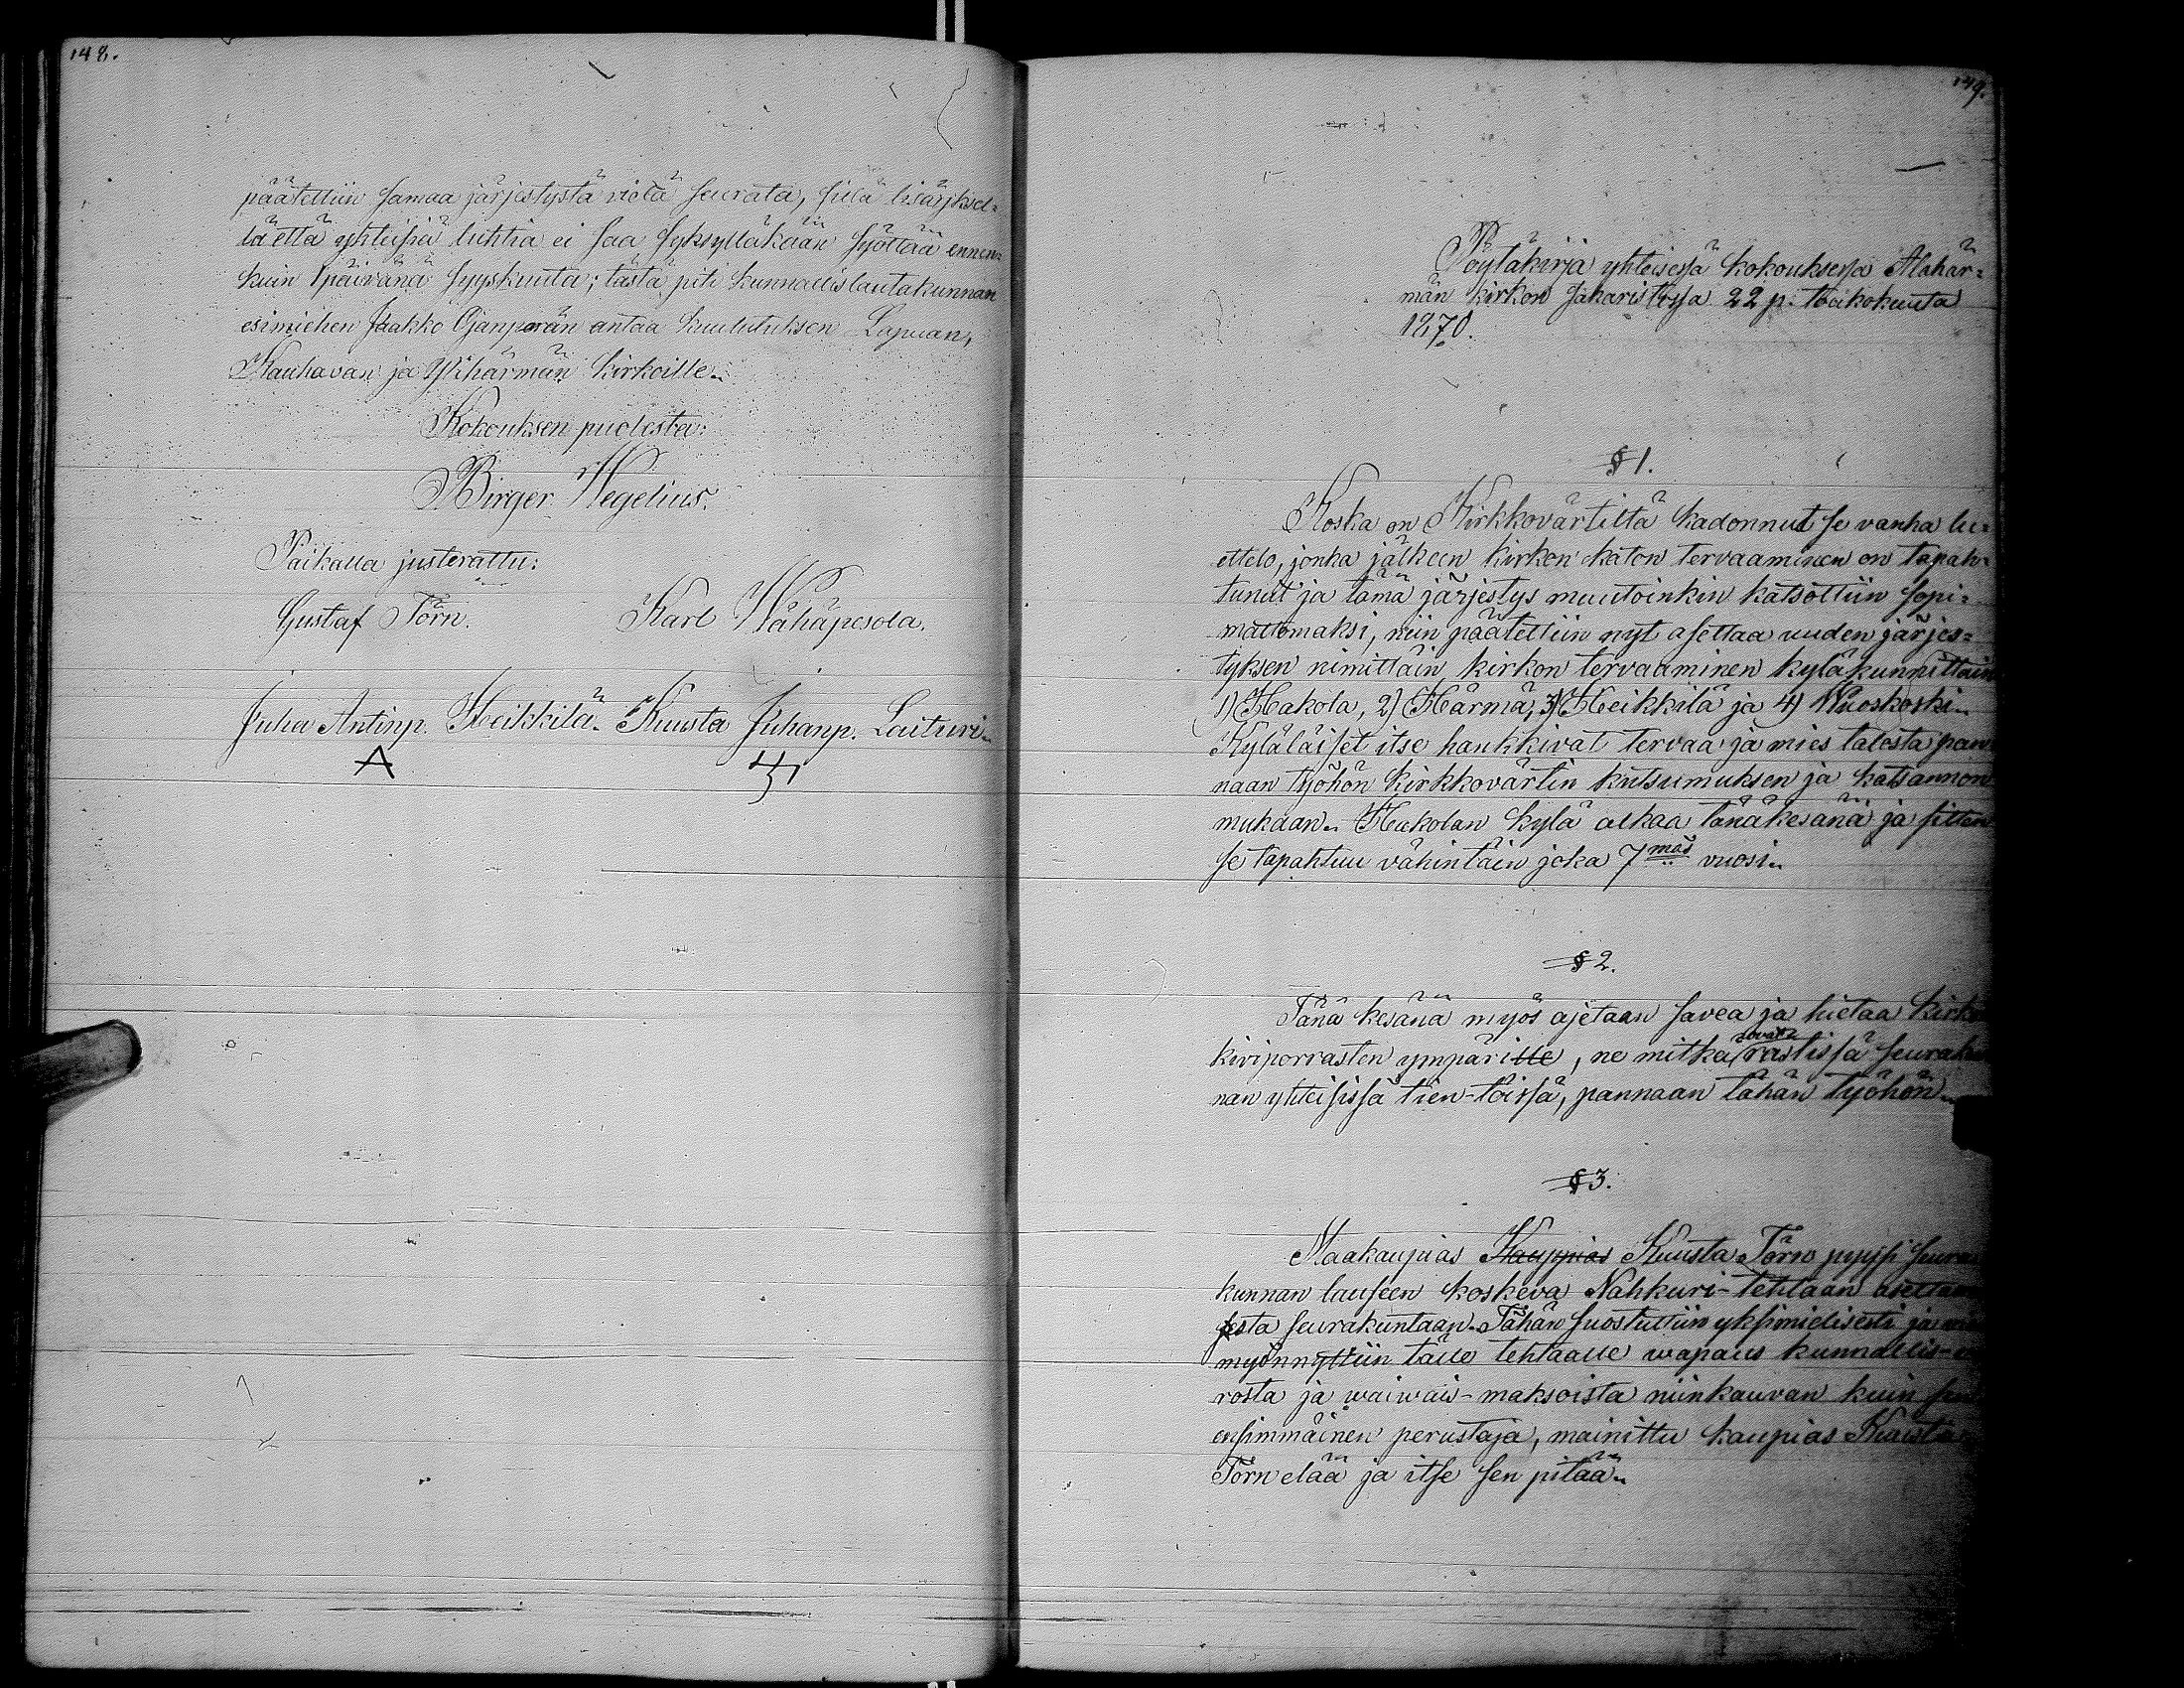 148.
päätettiin samaa järjestystä vielä seurata, sillä lisäyksel-
lä että yhteisiä luhtia ei saa syksylläkään syöttää ennen-
kuin 1 päivänä syyskuuta; tästä piti kunnallislautakunnan
esimiehen Jaakko Ojanperän antaa kuulutuksen Lapuan,
Kauhavan ja Ylihärmän kirkoille.
Kokouksen puolesta:
Birger Hegelius.
Paikalla justerattu:
Gustaf Törn. Karl Wähäpesola.
Juha Antinp. Heikkilä. Kuusta Juhanp. Laituri.
149.
Pöytäkirja yhteisessä kokouksessa Alahär-
män kirkon sakaristossa 22 p. toukokuuta
1870.
§ 1.
Koska on Kirkkovärtiltä kadonnut se vanha lu-
ettelo, jonka jälkeen kirkon katon tervaaminen on tapah-
tunut ja tämä järjestys muutoinkin katsottiin sopi-
mattomaksi, niin päätettiin nyt asettaa uuden järjes-
tyksen nimittäin kirkon tervaaminen kyläkunnittain
1) Hakola, 2) Härmä, 3) Heikkilä ja 4) Wuoskoski.
Kyläläiset itse hankkivat tervaa ja mies talosta pan-
naan työhön kirkkovärtin kutsumuksen ja katsannon
mukaan. Hakolan kylä alkaa tänäkesänä ja sitten
se tapahtuu vähintäin joka 7mäs vuosi.
§ 2.
Tänä kesänä myös ajetaan savea ja hietaa kirkon
kiviporrasten ympärille, ne mitkä ovat rästissä seurakun
nan yhteisissä tien-töissä, pannaan tähän työhön.
§ 3.
Maakaupias Kauppias Kuusta Törn pyysi seura
kunnan lauseen koskeva Nahkuri-tehtaan asettam
sesta seurakuntaan. Tähän suostuttiin yksimielisesti ja
myönnyttiin tälle tehtaalle wapaus kunnallis-
rosta ja waiwais-maksoista niinkauvan kuin sen
ensimmäinen perustaja, mainittu kaupias Kuusta
Törn elää ja itse sen pitää.